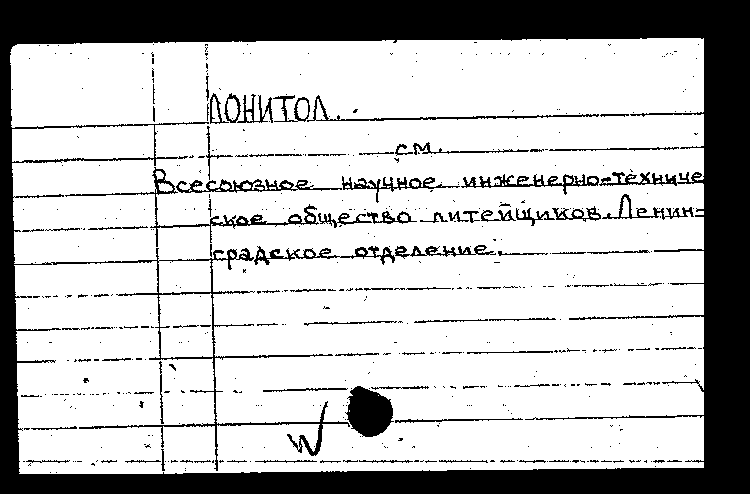 ЛОНИТОЛ.
см.
Всесоюзное научное инженерно-техниче
ское общество литейщиков. Ленин-
градское отделение.